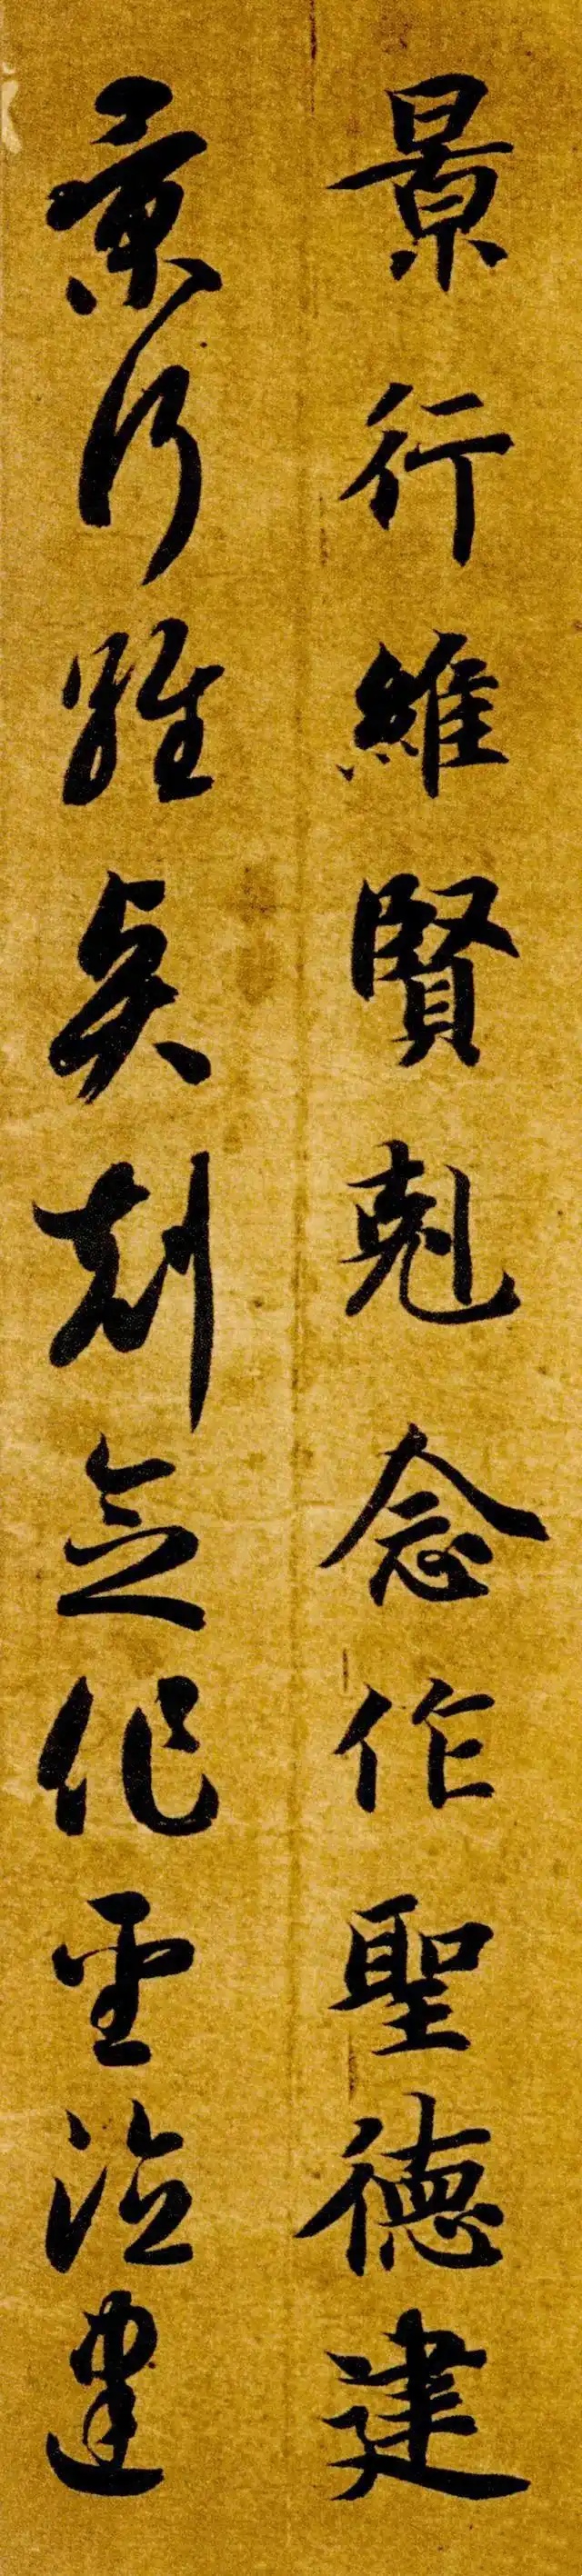 景行維賢剋念作聖德建
景行維賢剋念作聖德建